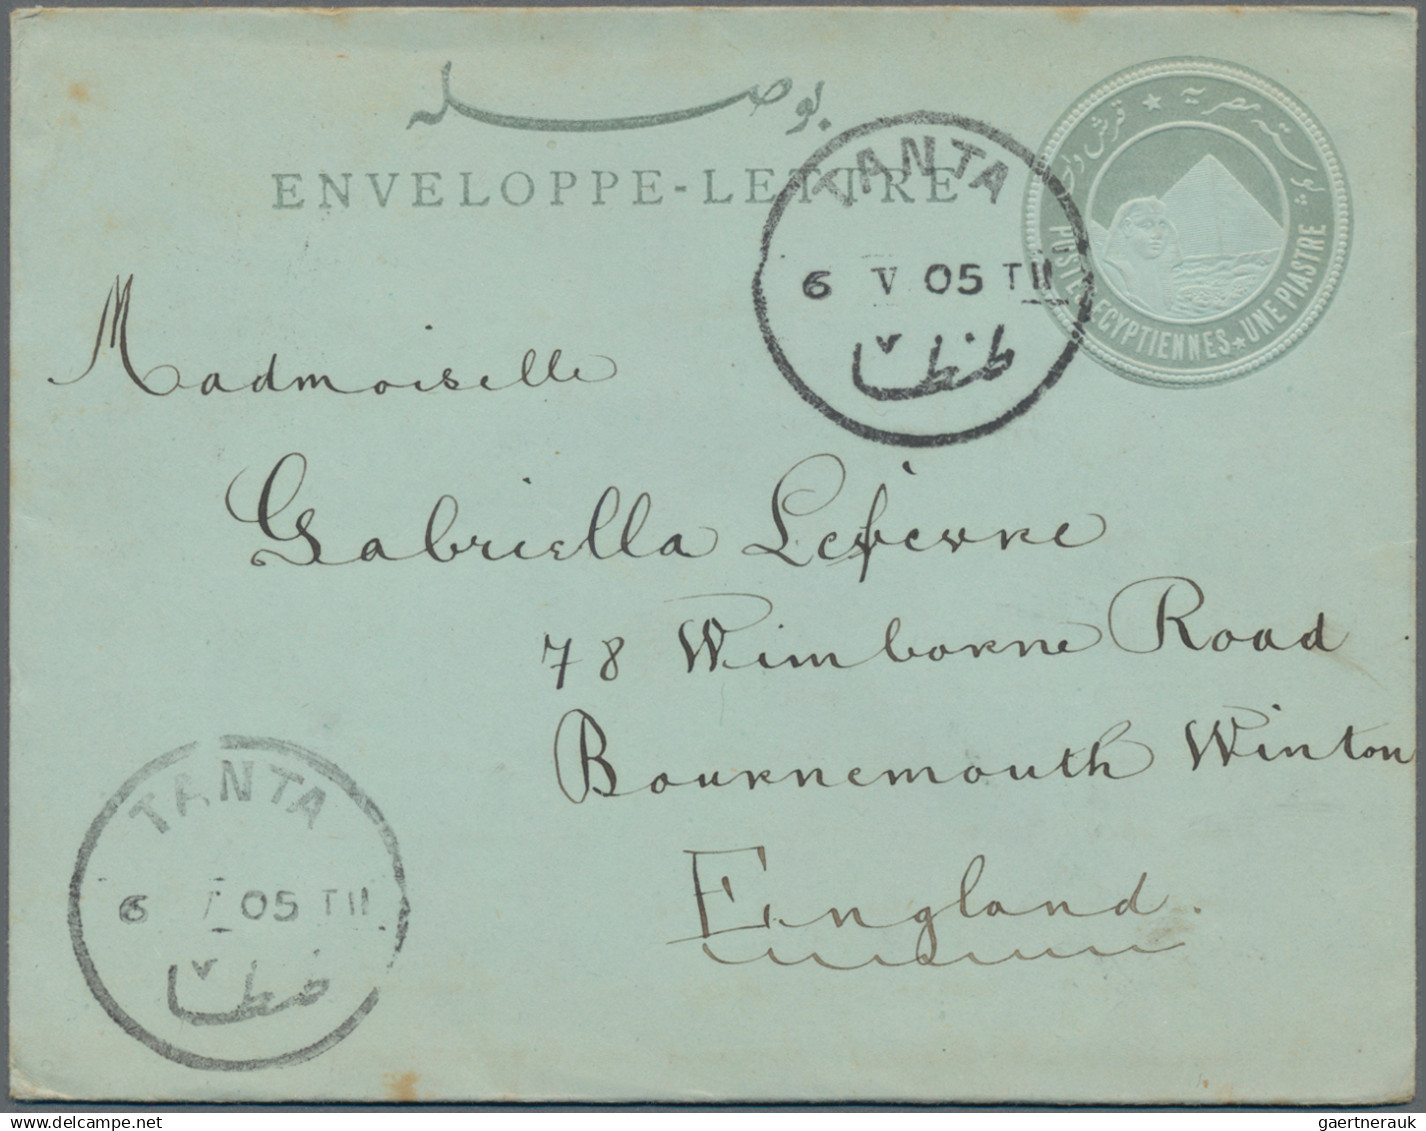 بوصله
ENVELOPPE-LETTRE
بوسته مصريه ★ قرش واحد
POSTES EGYPTIENNES ★ UNE PIASTRE
TANTA
6 V 05 TII
طنطا
Madmoiselle
Gabriella Lefevre
78 Wimborne Road
Bournemouth Winton
England.
TANTA
6 05 TII
طنطا
gaertnerauk